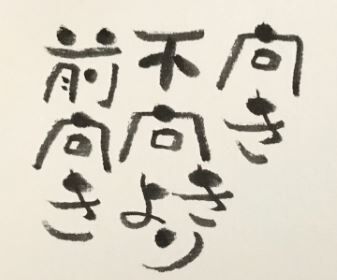 向き
不向きより
前向き